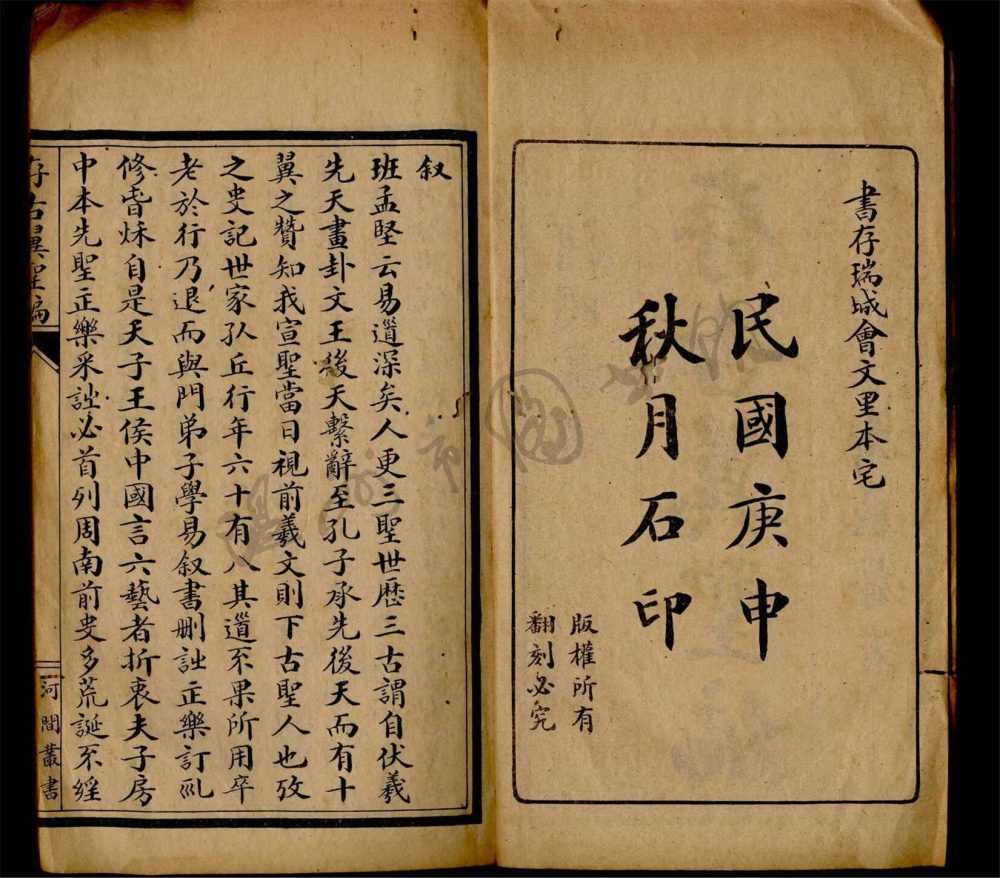 書存瑞城會文里本宅
民國庚申
秋月石印
版權所有
翻刻必究
叙
班孟堅云易道深矣人更三聖世歴三古謂自伏羲
先天畫卦文王後天繫辭至孔子承先後天而有十
翼之贊知我宣聖當日視前羲文則下古聖人也攷
之史記世家孔丘行年六十有八其道不果所用卒
老於行乃退而與門弟子學易叙書删詩正樂訂礼
修旾秌自是天子王侯中國言六藝者折衷夫子房
中本先聖正樂采詩必首列周南前史多荒誕不經
存古翼聖編
河間叢書